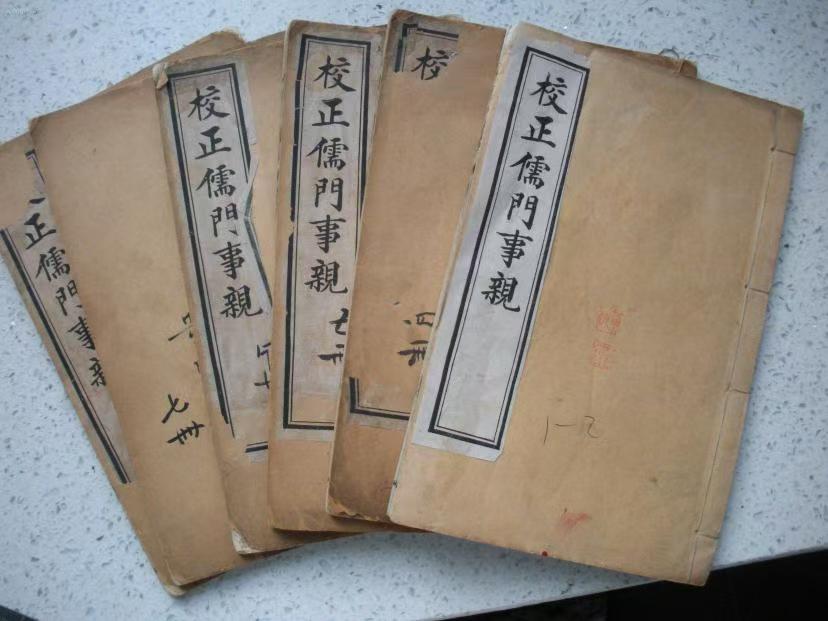 校正儒門事親
1-2
校
四冊
校正儒門事親
七冊
校正儒門事親
七冊
正儒門事親